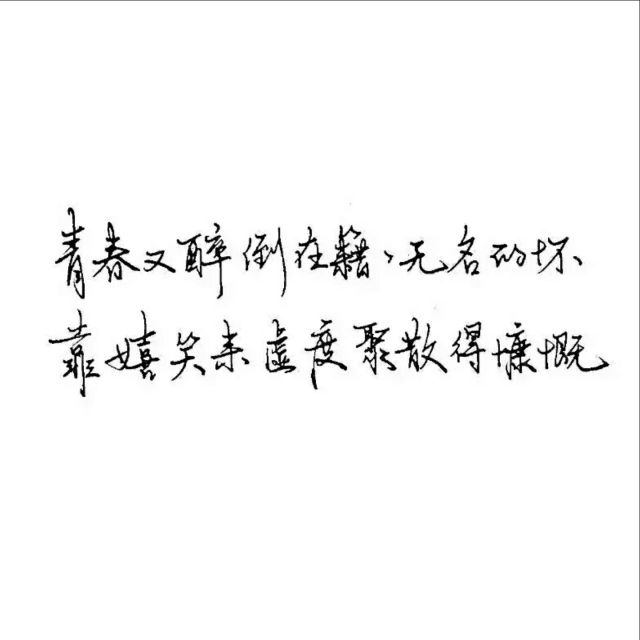 青春又醉倒在籍籍无名的怀
靠嬉笑来虚度聚散得慷慨